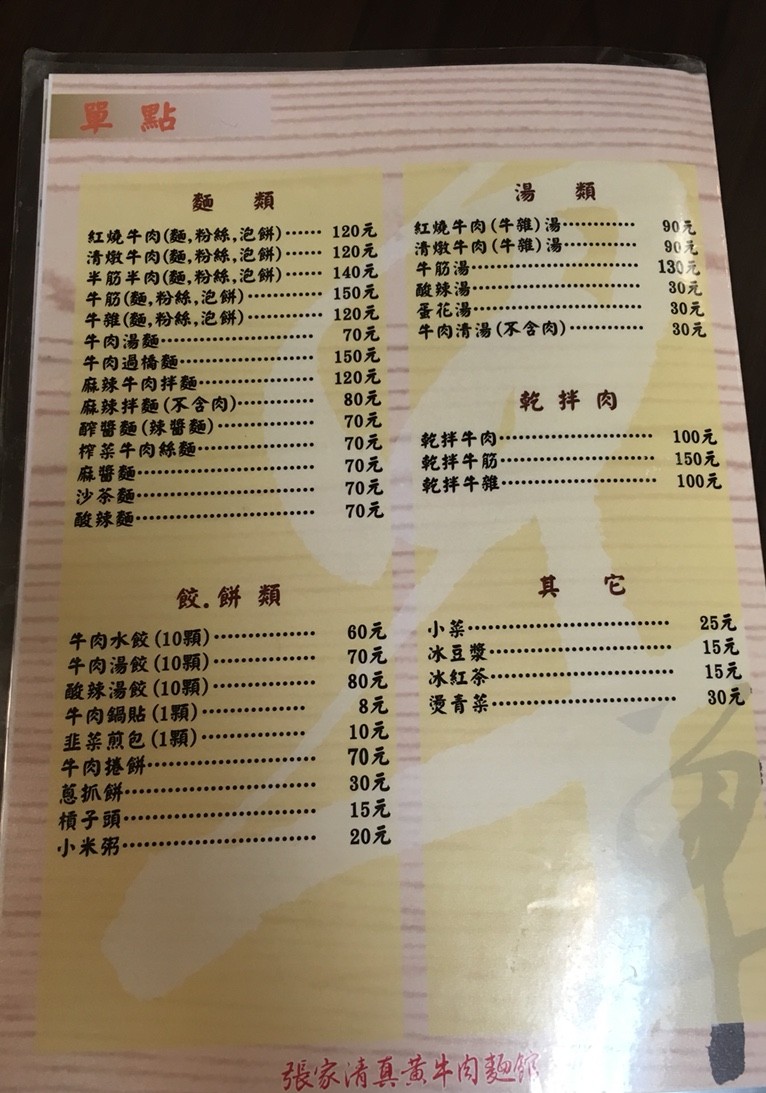 單點
麵 類
紅燒牛肉(麵,粉絲,泡餅)……120元
清燉牛肉(麵,粉絲,泡餅)……120元
半筋半肉(麵,粉絲,泡餅)……140元
牛筋(麵,粉絲,泡餅)…………150元
牛雜(麵,粉絲,泡餅)…………120元
牛肉湯麵……………………70元
牛肉過橋麵…………………150元
麻辣牛肉拌麵………………120元
麻辣拌麵(不含肉)……………80元
醡醬麵(辣醬麵)………………70元
榨菜牛肉絲麵………………70元
麻醬麵………………………70元
沙茶麵………………………70元
酸辣麵………………………70元
餃.餅類
牛肉水餃(10顆)……………60元
牛肉湯餃(10顆)……………70元
酸辣湯餃(10顆)……………80元
牛肉鍋貼(1顆)……………8元
韭菜煎包(1顆)……………10元
牛肉捲餅……………………70元
蔥抓餅………………………30元
槓子頭………………………15元
小米粥………………………20元
湯 類
紅燒牛肉(牛雜)湯…………90元
清燉牛肉(牛雜)湯…………90元
牛筋湯………………………130元
酸辣湯………………………30元
蛋花湯………………………30元
牛肉清湯(不含肉)…………30元
乾拌肉
乾拌牛肉……………………100元
乾拌牛筋……………………150元
乾拌牛雜……………………100元
其 它
小菜…………………………25元
冰豆漿………………………15元
冰紅茶………………………15元
燙青菜………………………30元
張家清真黃牛肉麵館